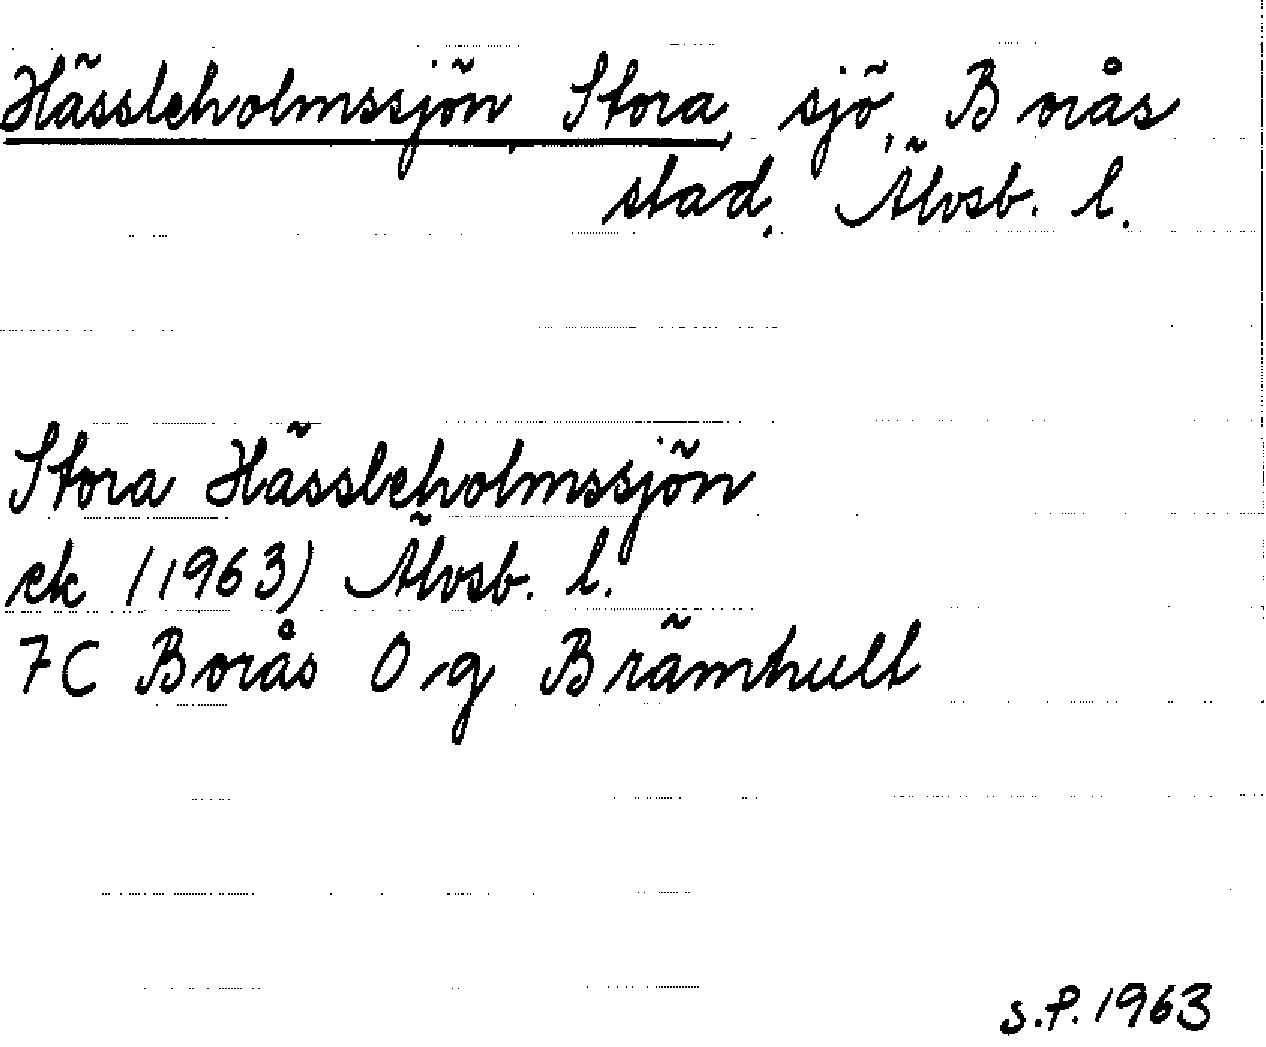 Hässleholmssjön, Stora, sjö, Borås
stad, Älvsb. l.
Stora Hässleholmssjön
ek (1963) Älvsb. l.
7C Borås O g Brämhult
S.P. 1963